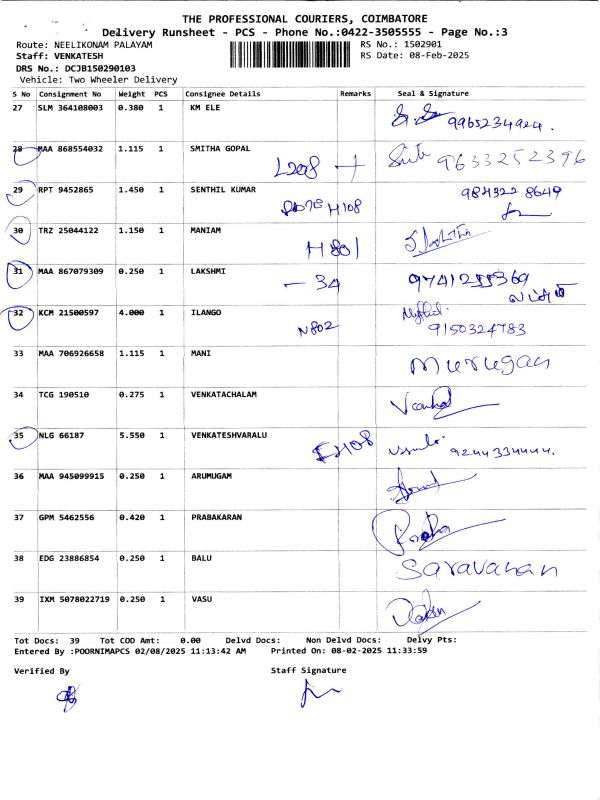 THE PROFESSIONAL COURIERS, COIMBATORE
Delivery Runsheet - PCS - Phone No.:0422-3505555 - Page No.:3
Route: NEELIKONAM PALAYAM RS No.: 1502901
Staff: VENKATESH RS Date: 08-Feb-2025
DRS No.: DCJB150290103
Vehicle: Two Wheeler Delivery
S No Consignment No Weight PCS Consignee Details Remarks Seal & Signature
27 SLM 364108003 0.380 1 KM ELE
9965234924.
28 MAA 868554032 1.115 1 SMITHA GOPAL
L208 9633252396
29 RPT 9452865 1.450 1 SENTHIL KUMAR
H108
30 TRZ 25044122 1.150 1 MANIAM
H801
31 MAA 867079309 0.250 1 LAKSHMI
- 34
32 KCM 21500597 4.000 1 ILANGO
N802 9150324783
33 MAA 706926658 1.115 1 MANI
Murugan
34 TCG 190510 0.275 1 VENKATACHALAM
35 NLG 66187 5.550 1 VENKATESHVARALU
9244334444.
36 MAA 945099915 0.250 1 ARUMUGAM
37 GPM 5462556 0.420 1 PRABAKARAN
38 EDG 23886854 0.250 1 BALU
Saravanan
39 IXM 5078022719 0.250 1 VASU
Tot Docs: 39 Tot COD Amt: 0.00 Delvd Docs: Non Delvd Docs: Delvy Pts:
Entered By :POORNIMAPCS 02/08/2025 11:13:42 AM Printed On: 08-02-2025 11:33:59
Verified By Staff Signature